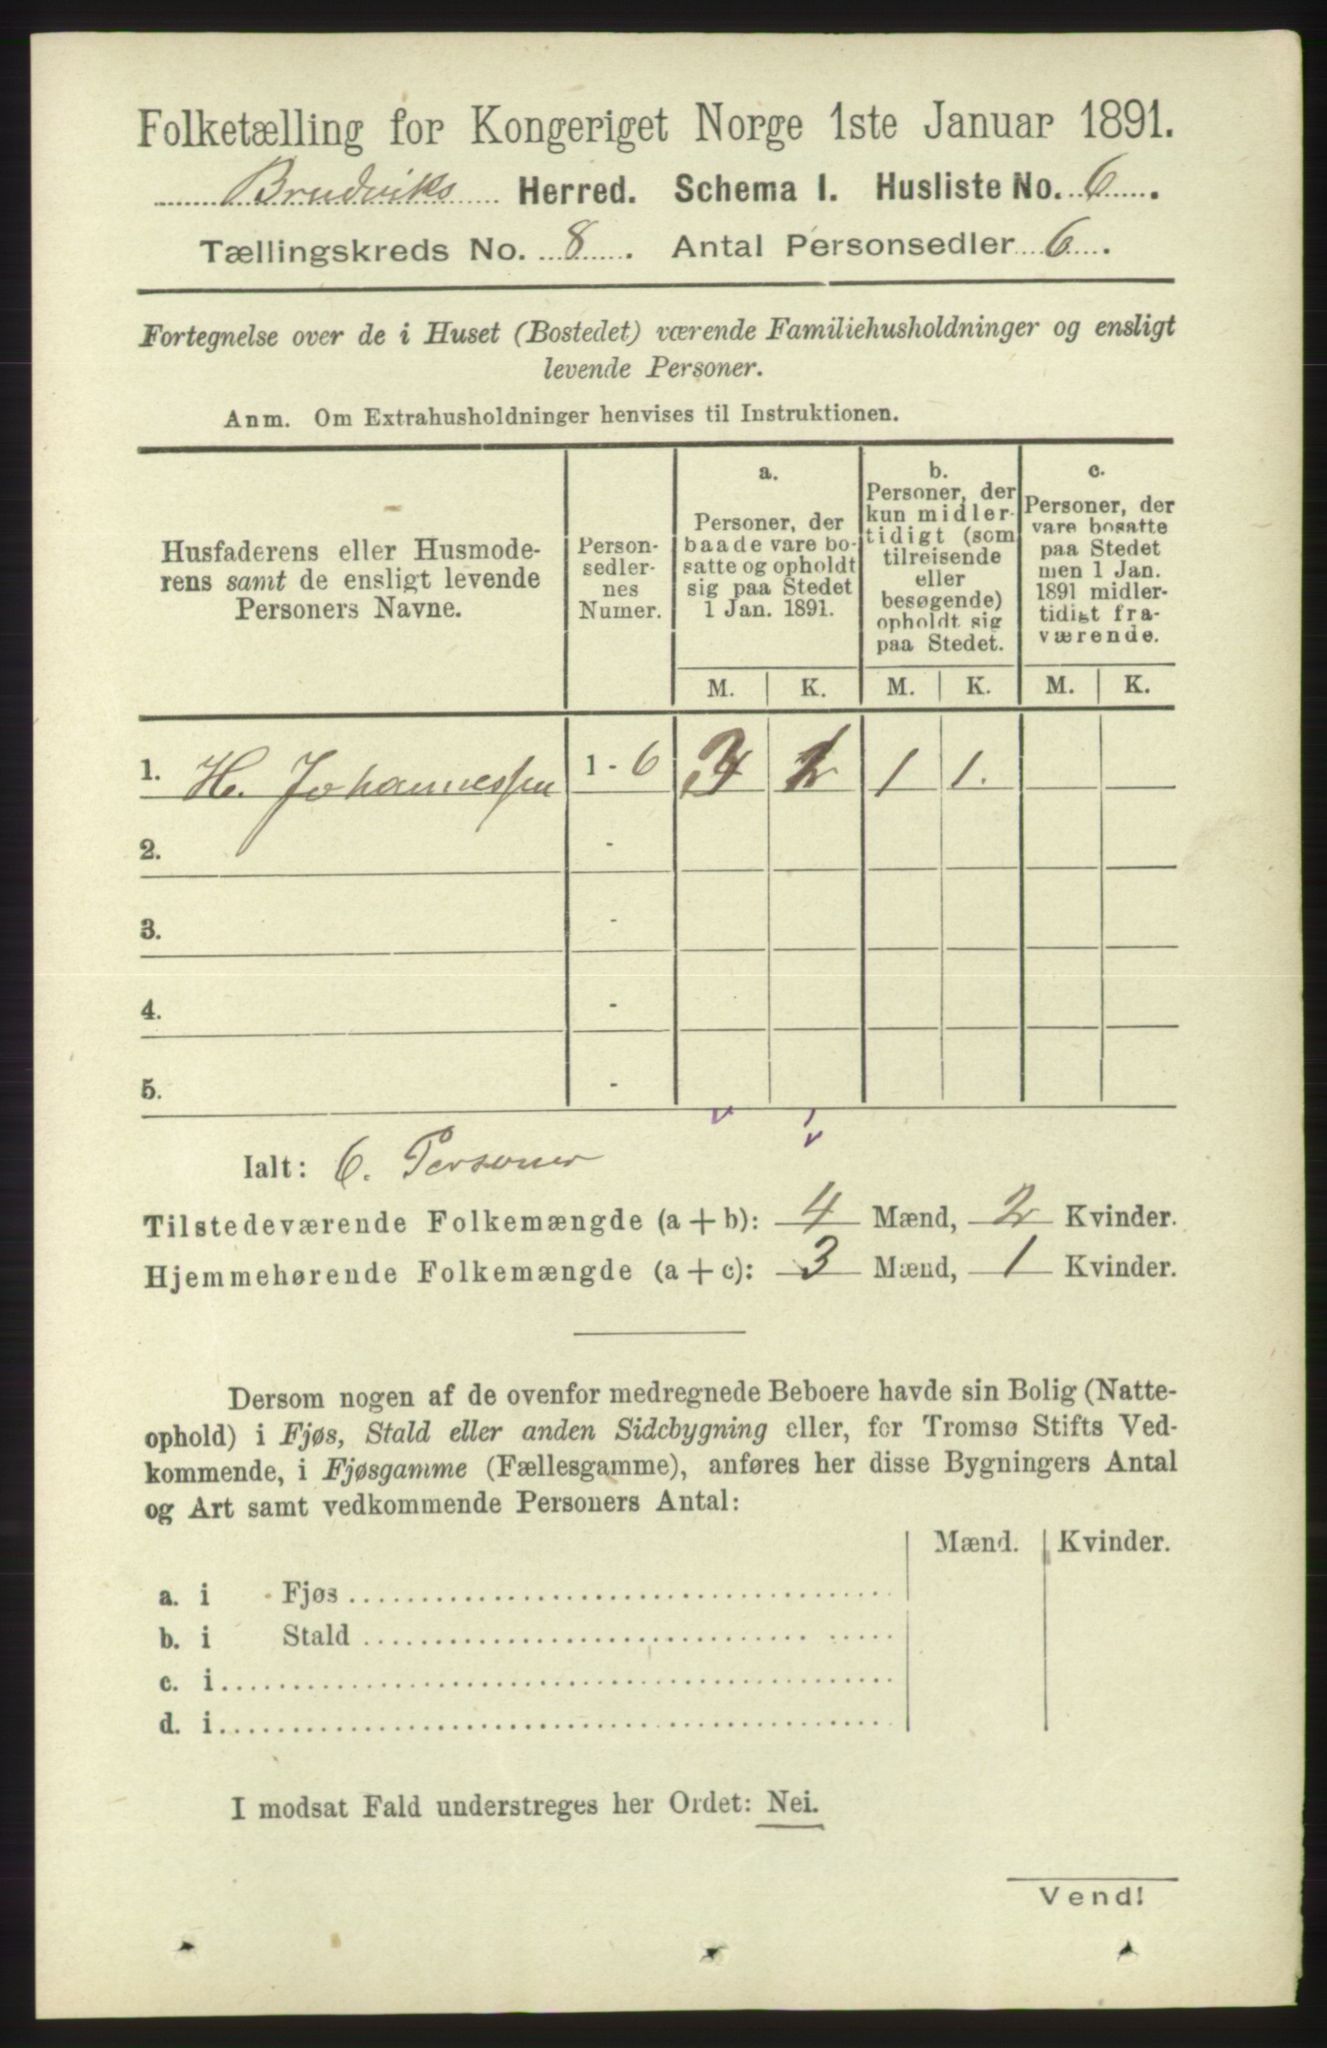 Folketælling for Kongeriget Norge 1ste Januar 1891.
Brudviks Herred. Schema I. Husliste No. 6.
Tællingskreds No. 8. Antal Personsedler 6.
Fortegnelse over de i Huset (Bostedet) værende Familiehusholdninger og ensligt
levende Personer.
Anm. Om Extrahusholdninger henvises til Instruktionen.
Husfaderens eller Husmode-
rens samt de ensligt levende
Personers Navne.
Person-
sedler-
nes
Numer.
a.
Personer, der
baade vare bo-
satte og opholdt
sig paa Stedet
1 Jan. 1891.
b.
Personer, der
kun midler-
tidigt (som
tilreisende
eller
besøgende)
opholdt sig
paa Stedet.
c.
Personer, der
vare bosatte
paa Stedet
men 1 Jan.
1891 midler-
tidigt fra-
værende.
M. K. M. K. M. K.
1. H. Johannessen 1 - 6 3 1 1 1.
2. -
3. -
4. -
5. -
Ialt: 6. Personer
Tilstedeværende Folkemængde (a + b): 4 Mænd, 2 Kvinder.
Hjemmehørende Folkemængde (a + c): 3 Mænd, 1 Kvinder.
Dersom nogen af de ovenfor medregnede Beboere havde sin Bolig (Natte-
ophold) i Fjøs, Stald eller anden Sidebygning eller, for Tromsø Stifts Ved-
kommende, i Fjøsgamme (Fællesgamme), anføres her disse Bygningers Antal
og Art samt vedkommende Personers Antal:
Mænd. Kvinder.
a. i Fjøs
b. i Stald
c. i
d. i
I modsat Fald understreges her Ordet: Nei.
Vend!